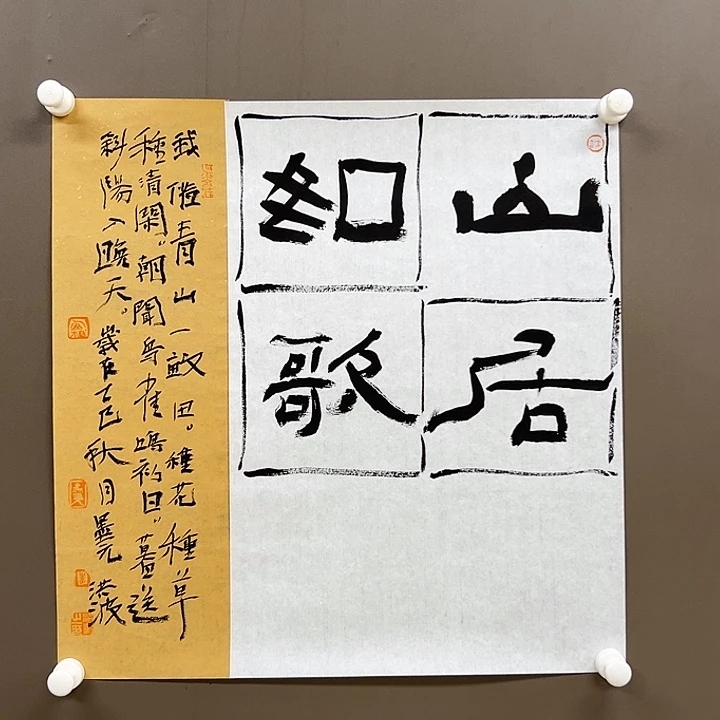 山居
如歌
我借青山一畝田。種花種草
種清閑。朝聞鳥雀鳴初日。暮送
斜陽入晚天。歲在乙巳秋月墨元洪波